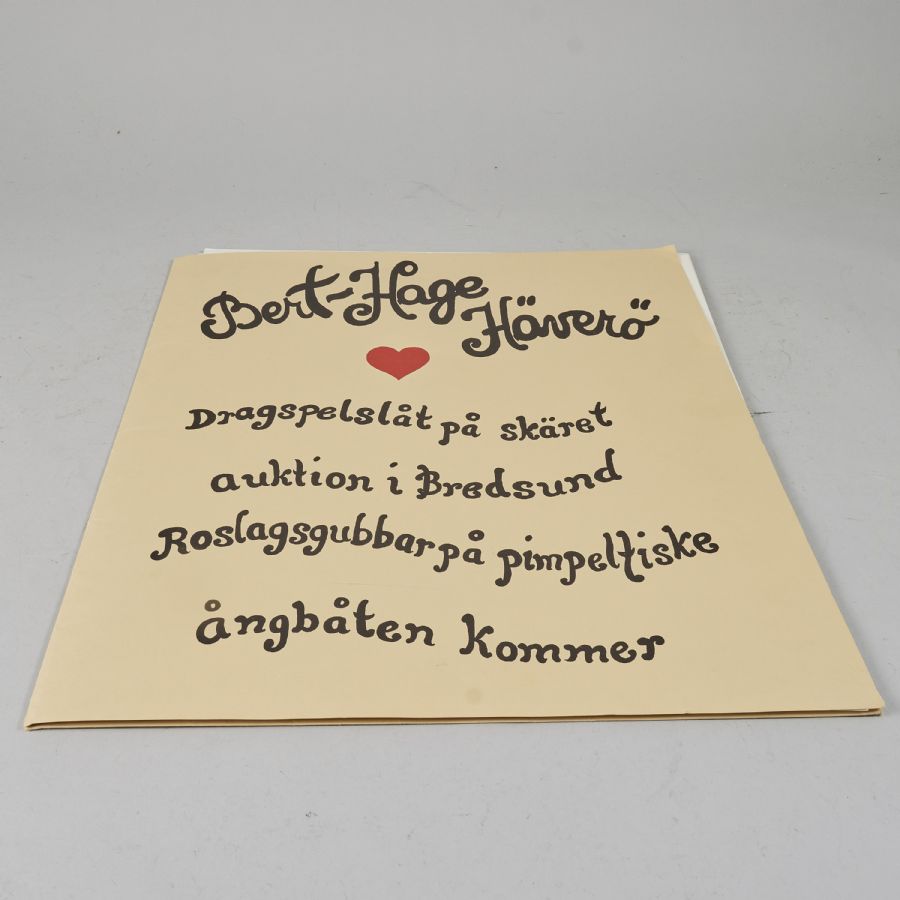 Bert-Håge
Häverö
Dragspelslåt på skäret
auktion i Bredsund
Roslagsgubbar på pimpelfiske
ångbåten kommer